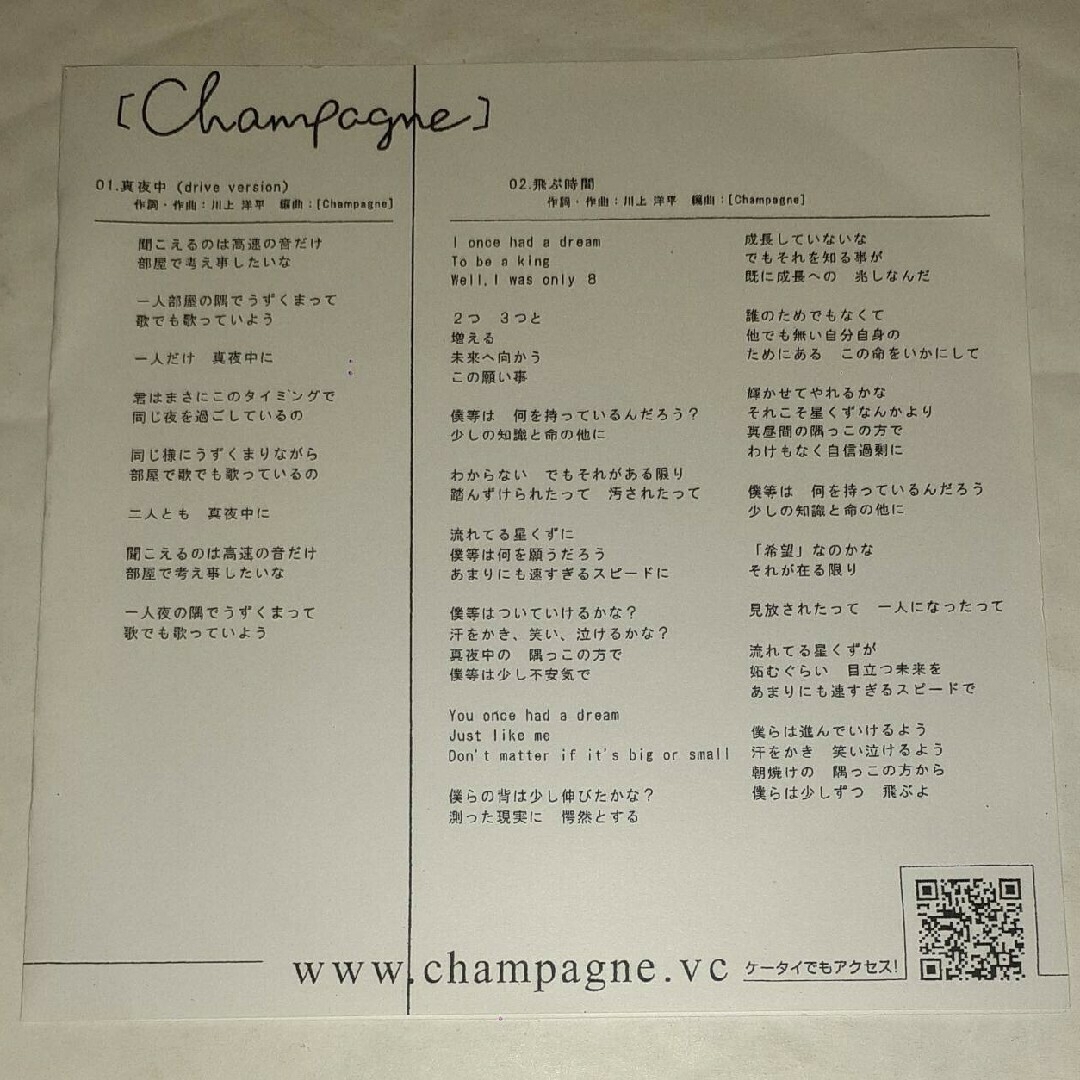 [Champagne]
01.真夜中 (drive version)
作詞・作曲:川上 洋平 編曲:[Champagne]
聞こえるのは高速の音だけ
部屋で考え事したいな
一人部屋の隅でうずくまって
歌でも歌っていよう
一人だけ 真夜中に
君はまさにこのタイミングで
同じ夜を過ごしているの
同じ様にうずくまりながら
部屋で歌でも歌っているの
二人とも 真夜中に
聞こえるのは高速の音だけ
部屋で考え事したいな
一人夜の隅でうずくまって
歌でも歌っていよう
02.飛ぶ時間
作詞・作曲:川上 洋平 編曲:[Champagne]
I once had a dream
To be a king
Well,I was only 8
2つ 3つと
増える
未来へ向かう
この願い事
僕等は 何を持っているんだろう?
少しの知識と命の他に
わからない でもそれがある限り
踏んずけられたって 汚されたって
流れてる星くずに
僕等は何を願うだろう
あまりにも速すぎるスピードに
僕等はついていけるかな?
汗をかき、笑い、泣けるかな?
真夜中の 隅っこの方で
僕等は少し不安気で
You once had a dream
Just like me
Don't matter if it's big or small
僕らの背は少し伸びたかな?
測った現実に 愕然とする
成長していないな
でもそれを知る事が
既に成長への 兆しなんだ
誰のためでもなくて
他でも無い自分自身の
ためにある この命をいかにして
輝かせてやれるかな
それこそ星くずなんかより
真昼間の隅っこの方で
わけもなく自信過剰に
僕等は 何を持っているんだろう
少しの知識と命の他に
「希望」なのかな
それが在る限り
見放されたって 一人になったって
流れてる星くずが
妬むぐらい 目立つ未来を
あまりにも速すぎるスピードで
僕らは進んでいけるよう
汗をかき 笑い泣けるよう
朝焼けの 隅っこの方から
僕らは少しずつ 飛ぶよ
www.champagne.vc ケータイでもアクセス!